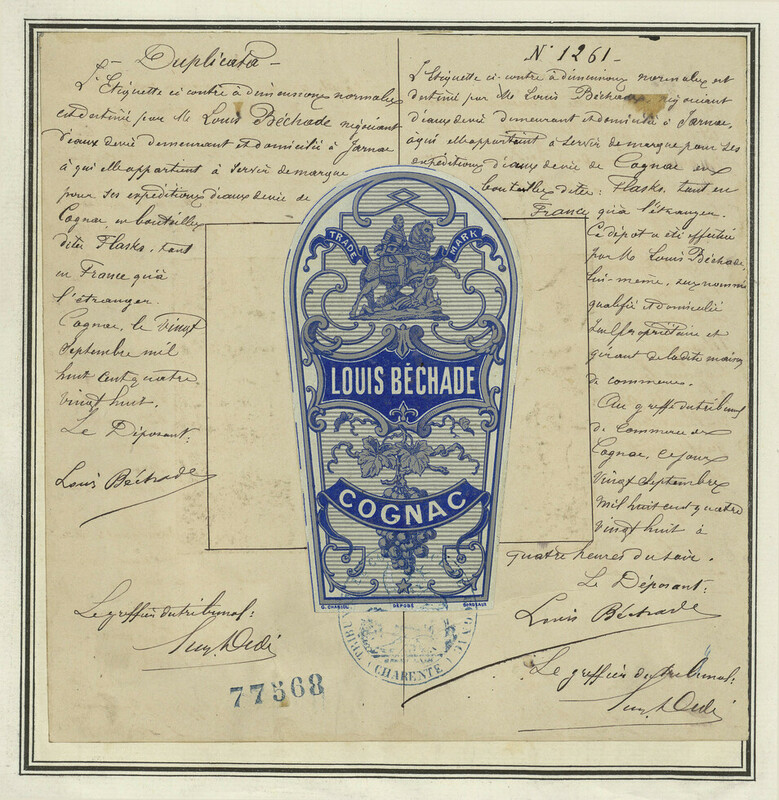 Duplicata
L'Etiquette ci contre à dimensions normales
est destiné par Me Louis Béchade négociant
d'eaux devie demeurant et domicilié à Jarnac
à qui elle appartient à servir de marque
pour ses expéditions d'eaux devie de
Cognac en bouteilles
dites Flasks, tant
en France qu'à
l'étranger.
Cognac, le vingt
Septembre mil
huit cent quatre
vingt huit.
Le Déposant:
Louis Béchade
Le greffier du tribunal:
77568
TRADE MARK
LOUIS BÉCHADE
COGNAC
G. CHARIOL DÉPOSÉ BORDEAUX
CHARENTE
N° 1261
L'Etiquette ci-contre à dimensions normales est
destiné par Me Louis Béchade négociant
d'eaux devie demeurant et domicilié à Jarnac,
à qui elle appartient à servir de marque pour ses
expéditions d'eaux devie de Cognac en
bouteilles dites: Flasks, tant en
France qu'à l'étranger.
Ce dépot a été effectué
par M Louis Béchade,
lui-même, sus nommé
qualifié et domicilié
seul propriétaire et
gérant de la dite maison
de commerce.
Au greffe du tribunal
de Commerce de
Cognac, ce jour
vingt Septembre
mil huit cent quatre
vingt huit à
quatre heures du soir.
Le Déposant:
Louis Béchade
Le greffier du tribunal: